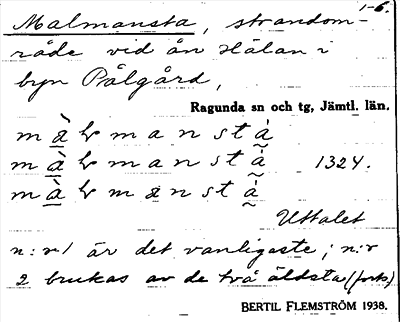 1-6.
Malmansta, strandom-
råde vid ån Hälan i
byn Pålgård,
Ragunda sn och tg, Jämtl. län.
m à̲ ɫ m a n s t à̰
m à̲ ɫ m a n s t à̰ 1324.
m à̲ ɫ m a n s t à̰
Uttalet
n:r 1 är det vanligaste; n:r
2 brukas av de två äldsta (forts)
BERTIL FLEMSTRÖM 1938.